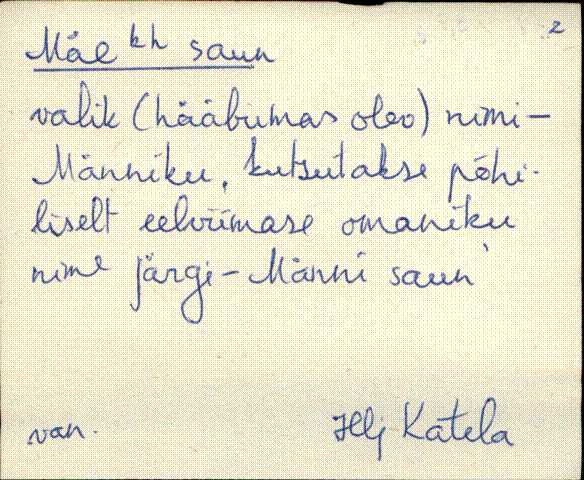 2
Mäe kh saun
valik (hääbumas olev) nimi-
Männiku, kutsutakse põhi-
liselt eelviimase omaniku
nime järgi - Männi saun
van. Hlj Katela